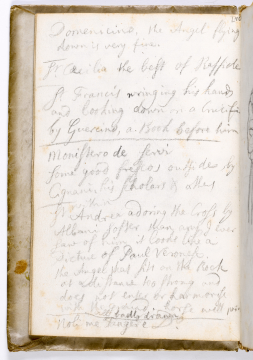 Domenichino, the Angel flying
down is very fine
St Cecilia the best of Raffaele
St Francis wringing his hands
and looking down on a Crucifix
by Guercino, a Book before him
Monistero de Servi
Some good frescos outside by
Cignani's scholars &
St Andrea adoring the Cross by
Albani softer than any I ever
saw of him it looks like a
Picture of Paul Verones
the Angel that sits on the Rock
at a distance is strong and
does not or harmonise
badly drawn